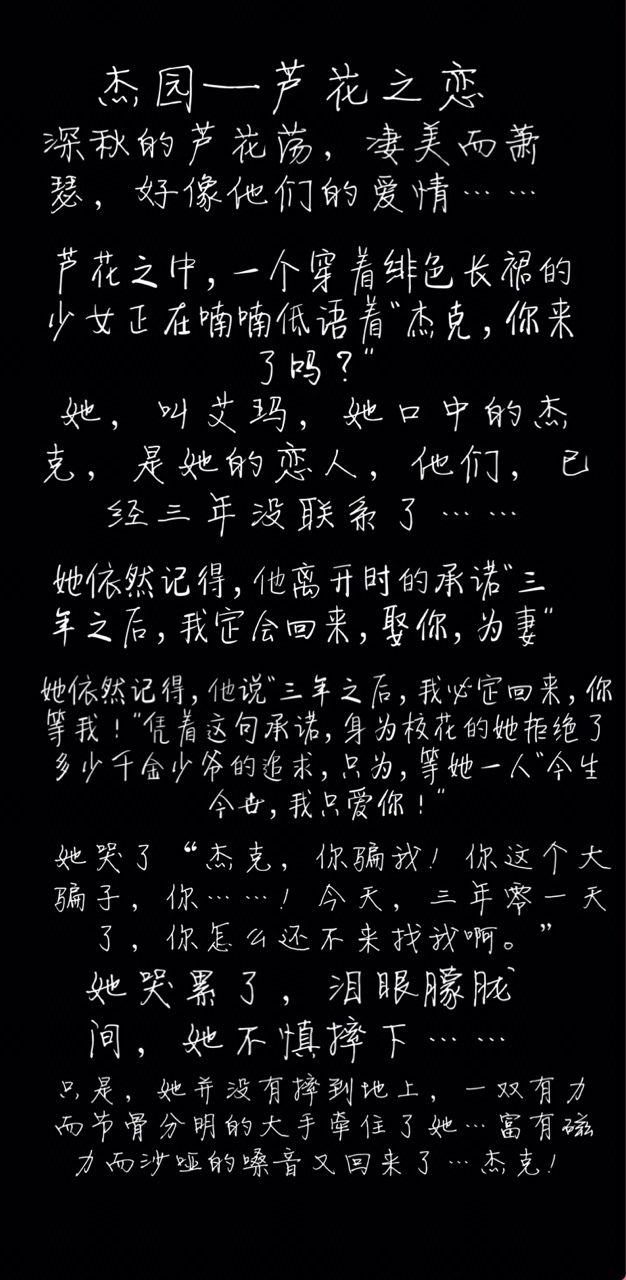 杰园—芦花之恋
深秋的芦花荡，凄美而萧
瑟，好像他们的爱情……
芦花之中，一个穿着绯色长裙的
少女正在喃喃低语着“杰克，你来
了吗？“
她，叫艾玛，她口中的杰
克，是她的恋人，他们，已
经三年没联系了……
她依然记得，他离开时的承诺“三
年之后，我定会回来，娶你，为妻“
她依然记得，他说“三年之后，我必定回来，你
等我！“凭着这句承诺，身为校花的她拒绝了
多少千金少爷的追求，只为，等她一人“今生
今世，我只爱你！“
她哭了“杰克，你骗我！你这个大
骗子，你……！今天，三年零一天
了，你怎么还不来找我啊。”
她哭累了，泪眼朦胧
间，她不慎摔下……
只是，她并没有摔到地上，一双有力
而节骨分明的大手牵住了她…富有磁
力而沙哑的嗓音又回来了…杰克！